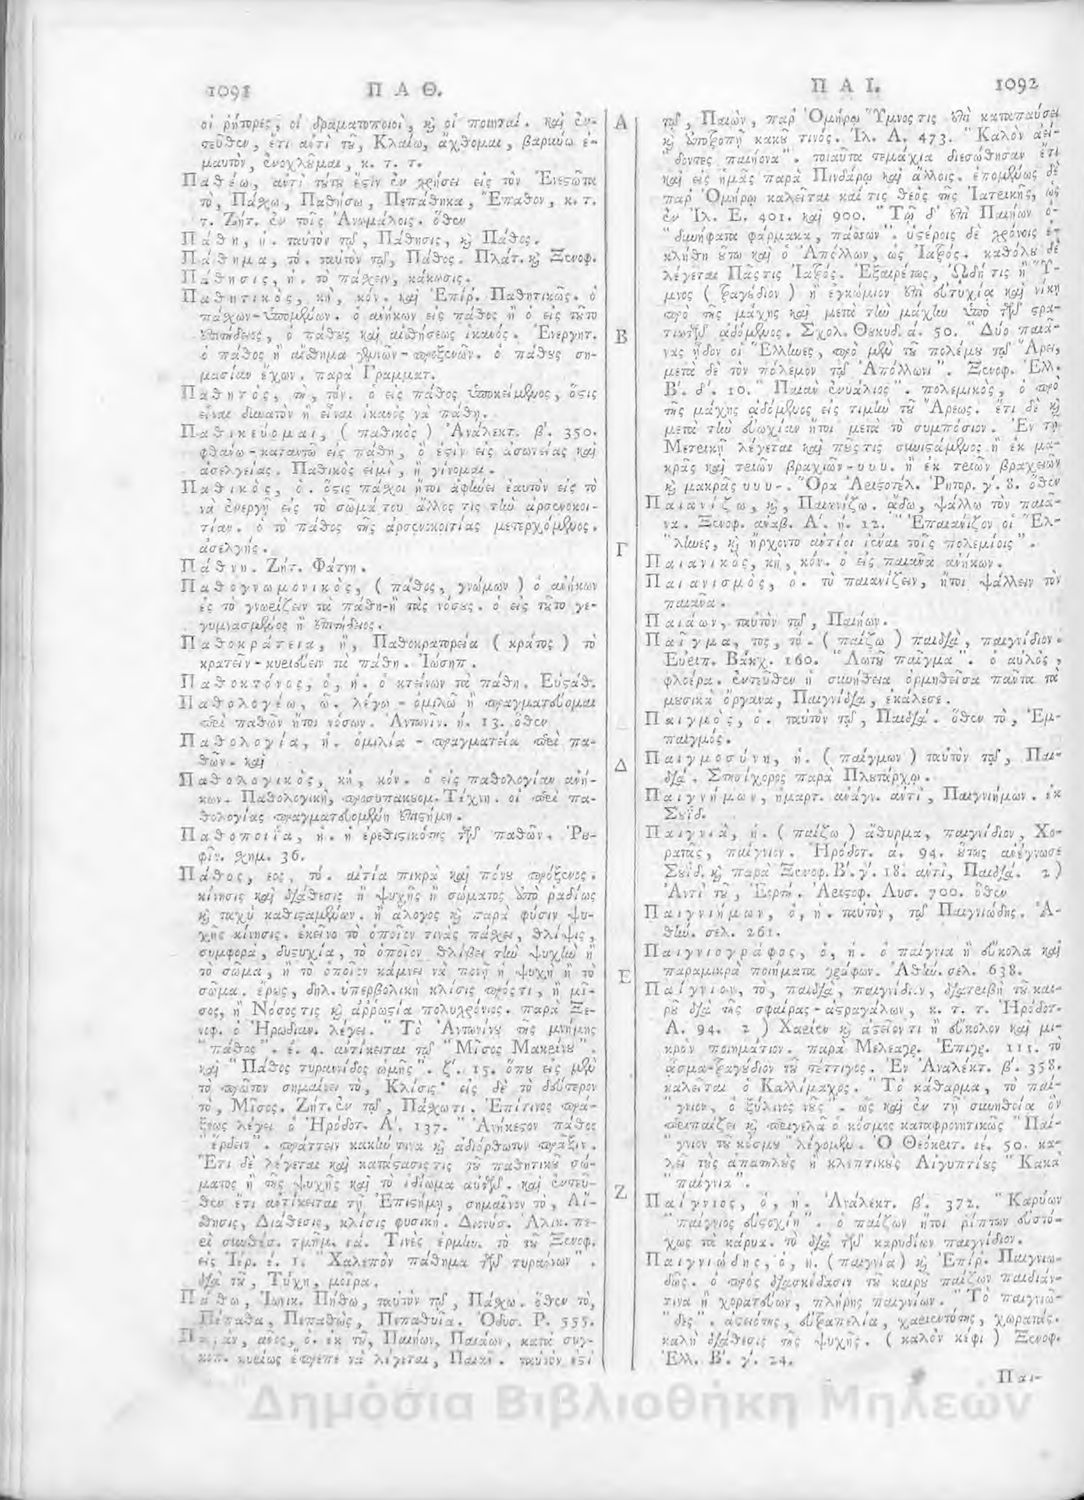 1091 ΠΑΘ.
οἱ ῥήτορες, οἱ δραματοποιοὶ, καὶ οἱ ποιηταί. καὶ ἐν-
τεῦθεν, ἔτι ἀντὶ τοῦ, Κλαίω, ἄχθομαι, βαρύνω ἐ-
μαυτὸν, ἐνοχλοῦμαι, κ. τ. τ.
Παθέω, ἀντὶ τούτου ἐστὶν ἐν χρήσει εἰς τὸν Ἐνεστῶτα
τὸ, Πάσχω, Παθήσω, Πεπάθηκα, Ἔπαθον, κ. τ.
τ. Ζήτ. ἐν τοῖς Ἀνωμάλοις. ὅθεν
Πάθη, ἡ. ταὐτὸν τῷ, Πάθησις, καὶ Πάθος.
Πάθημα, τό. ταὐτὸν τῷ, Πάθος. Πλάτ. καὶ Ξενοφ.
Πάθησις, ἡ. τὸ πάσχειν, κάκωσις.
Παθητικὸς, κὴ, κόν. καὶ Ἐπίρ. Παθητικῶς. ὁ
πάσχων-ὑπομένων. ὁ ἀνήκων εἰς πάθος ἢ ὁ εἰς τοῦτο
ἐπιτήδειος, ὁ πάθους καὶ αἰσθήσεως ἱκανός. Ἐνεργητ.
ὁ πάθος ἢ αἴσθημα γεννῶν-προξενῶν. ὁ πάθους ση-
μασίαν ἔχων. παρὰ Γραμματ.
Παθητὸς, τὴ, τόν. ὁ εἰς πάθος ὑποκείμενος, ὅστις
εἶναι δυνατὸν ἢ εἶναι ἱκανὸς νὰ πάθῃ.
Παθικεύομαι, (παθικὸς) Ἀνάλεκτ. β'. 350.
φθάνω-καταντῶ εἰς πάθη, ὅ ἐστιν εἰς ἀσωτείας καὶ
ἀσελγείας. Παθικὸς εἰμὶ, ἢ γίνομαι.
Παθικὸς, ὁ. ὅστις πάσχει ἤτοι ἀφίνει ἑαυτὸν εἰς τὸ
νὰ ἐνεργῇ εἰς τὸ σῶμά του ἄλλος τις τὴν ἀρσενοκοι-
τίαν. ὁ τὸ πάθος τῆς ἀρσενοκοιτίας μετερχόμενος.
ἀσελγής.
Πάθνη. Ζήτ. Φάτνη.
Παθογνωμονικὸς, (πάθος, γνώμων) ὁ ἀνήκων
ἐς τὸ γνωρίζειν τὰ πάθη-ἢ τὰς νόσους. ὁ εἰς τοῦτο γε-
γυμνασμένος ἢ ἐπιτήδειος.
Παθοκράτεια, ἡ, Παθοκρατορεία (κράτος) τὸ
κρατεῖν-κυριεύειν τὰ πάθη. Ἰώσηπ.
Παθοκτόνος, ὁ, ἡ. ὁ κτείνων τὰ πάθη. Εὐστάθ.
Παθολογέω, ῶ. λέγω-ὁμιλῶ ἢ πραγματεύομαι
περὶ παθῶν ἤτοι νόσων. Ἀντωνῖν. ἡ. 13. ὅθεν
Παθολογία, ἡ. ὁμιλία-πραγματεία περὶ πα-
θῶν. καὶ
Παθολογικὸς, κὴ, κόν. ὁ εἰς παθολογίαν ἀνή-
κων. Παθολογικὴ, προσυπακουομ. Τέχνη. οἱ περὶ πα-
θολογίας πραγματευομένη ἐπιστήμη.
Παθοποιΐα, ἡ. ἡ ἐρεθιστικότης τῶν παθῶν. Ῥου-
φῖν. σχημ. 36.
Πάθος, εος, τό. αἰτία πικρὰ καὶ πόνου πρόξενος.
κίνησις καὶ διάθεσις ἢ ψυχῆς ἢ σώματος ἀπὸ ῥαδίως
καὶ ταχὺ καθισταμένων. ἢ ἄλογος καὶ παρὰ φύσιν ψυ-
χῆς κίνησις. ἐκεῖνο τὸ ὁποῖον τινὰς πάσχει, θλίψις,
συμφορὰ, δυστυχία, τὸ ὁποῖον θλίβει τὴν ψυχὴν ἢ
τὸ σῶμα, ἢ τὸ ὁποῖον κάμνει νὰ πονῇ ἡ ψυχὴ ἢ τὸ
σῶμα. ἔρως, δηλ. ὑπερβολικὴ κλίσις πρὸς τι, ἢ μῖ-
σος, ἢ Νόσος τις καὶ ἀῤῥωστία πολυχρόνιος. παρὰ Ξε-
νοφ. ὁ Ἡρωδιαν. λέγει. "Τὸ Ἀντωνίνου τῆς μνήμης
"πάθος". ἑ. 4. ἀντίκειται τῷ "Μῖσος Μακρίνου".
καὶ "Πάθος τυραννίδος ὠμῆς". ζ'. 15. ὅπου εἰς μὲν
τὸ πρῶτον σημαίνει τὸ, Κλίσις· εἰς δὲ τὸ δεύτερον
τὸ, Μῖσος. Ζήτ. ἐν τῷ, Πάσχω τι. Ἐπίτινος πρά-
ξεως λέγει ὁ Ἡρόδοτ. Α'. 137. "Ἀνήκεστον πάθος
"ἔρδειν". πράττειν κακὴν τινα καὶ ἀδιόρθωτον πρᾶξιν.
Ἔτι δὲ λέγεται καὶ κατάστασίς τις τοῦ παθητικοῦ σώ-
ματος ἢ τῆς ψυχῆς καὶ τὸ ἰδίωμα αὐτῶν. καὶ ἐντεῦ-
θεν ἔτι ἀντίκειται τῇ Ἐπιστήμῃ, σημαῖνον τὸ, Αἴ-
σθησις, Διάθεσις, κλίσις φυσική. Διονύσ. Ἁλικ. πε-
ρὶ συνθέσ. τμῆμ. ιά. Τινὲς ἑρμην. τὸ τοῦ Ξενοφ.
εἰς Ἱερ. ἑ. 1. "Χαλεπὸν πάθημα τῶν τυράννων".
διὰ τοῦ, Τύχη, μοῖρα.
Πάθω, Ἰωνικ. Πήθω, ταὐτὸν τῷ, Πάσχω. ὅθεν τὸ,
Πέπαθα, Πεπαθὼς, Πεπαθυῖα. Ὀδυσ. Ρ. 555.
Παιὰν, ᾶνος, ὁ. ἐκ τοῦ, Παιήων, Παιάων, κατὰ συγ-
κοπ. κυρίως ἔπρεπε νὰ λέγεται, ταὐτὸν ἐστὶ
Α
Β
Γ
Δ
Ε
Ζ
ΠΑΙ. 1092
τῷ, Παιὼν, παρ' Ὁμήρῳ Ὕμνος τις ἐπὶ καταπαύσει
καὶ ἀποτροπῇ κακοῦ τινός. Ἰλ. Α. 473. "Καλὸν ἀεί-
"δοντες παιήονα". τοιαῦτα τεμάχια διεσώθησαν ἔτι
καὶ εἰς ἡμᾶς παρὰ Πινδάρῳ καὶ ἄλλοις. ἑπομένως δὲ
παρ' Ὁμήρῳ καλεῖται καί τις θεὸς τῆς Ἰατρικῆς, ὡς
ἐν Ἰλ. Ε. 401. καὶ 900. "Τῷ δ' ἐπὶ Παιήων ὀ-
"δυνήφατα φάρμακα, πάσσων". ὑστέροις δὲ χρόνοις ἐ-
κλήθη οὕτω καὶ ὁ Ἀπόλλων, ὡς Ἰατρός. καθόλου δὲ
λέγεται Πᾶς τις Ἰατρός. Ἐξαιρέτως, ᾨδή τις ἢ Ὕ-
μνος (τραγῴδιον) ἢ ἐγκώμιον ἐπὶ εὐτυχίᾳ καὶ νίκῃ
πρὸ τῆς μάχης καὶ μετὰ τὴν μάχην ὑπὸ τῶν στρα-
τιωτῶν ᾀδόμενος. Σχολ. Θουκυδ. ά. 50. "Δύο παιᾶ-
νας ᾖδον οἱ Ἕλληνες, πρὸ μὲν τοῦ πολέμου τῷ Ἄρει,
μετὰ δὲ τὸν πόλεμον τῷ Ἀπόλλωνι". Ξενοφ. Ἑλλ.
Β'. δ'. 10. "Παιὰν ἐνυάλιος". πολεμικὸς, ὁ πρὸ
τῆς μάχης ᾀδόμενος εἰς τιμὴν τοῦ Ἄρεως. ἔτι δὲ καὶ
μετὰ τὴν εὐωχίαν ἤτοι μετὰ τὸ συμπόσιον. Ἐν τῇ
Μετρικῇ λέγεται καὶ ποῦς τις συνιστάμενος ἢ ἐκ μα-
κρᾶς καὶ τριῶν βραχειῶν-υυυ. ἢ ἐκ τριῶν βραχειῶν
καὶ μακρᾶς υυυ-. Ὅρα Ἀριστοτέλ. Ῥητορ. γ'. 8. ὅθεν
Παιανίζω, καὶ, Παιωνίζω. ᾄδω, ψάλλω τὸν παιᾶ-
να. Ξενοφ. ἀναβ. Α'. ή. 12. "Ἐπαιάνιζον οἱ Ἕλ-
"ληνες, καὶ ἤρχοντο ἀντίοι ἰέναι τοῖς πολεμίοις".
Παιανικὸς, κὴ, κόν. ὁ εἰς παιᾶνα ἀνήκων.
Παιανισμὸς, ὁ. τὸ παιανίζειν, ἤτοι ψάλλειν τὸν
παιᾶνα.
Παιάων, ταὐτὸν τῷ, Παιήων.
Παῖγμα, τος, τό. (παίζω) παιδιὰ, παιγνίδιον.
Εὐριπ. Βάκχ. 160. "Λωτοῦ παῖγμα". ὁ αὐλὸς,
φλοέρα. ἐντεῦθεν ἡ συνήθεια ὁρμηθεῖσα πάντα τὰ
μουσικὰ ὄργανα, Παιγνίδια, ἐκάλεσε.
Παιγμὸς, ὁ. ταὐτὸν τῷ, Παιδιά. ὅθεν τὸ, Ἐμ-
παιγμός.
Παιγμοσύνη, ἡ. (παίγμων) ταὐτὸν τῷ, Παι-
διά. Στησίχορος παρὰ Πλουτάρχῳ.
Παιγνήμων, ἡμαρτ. ἀνάγν. ἀντὶ, Παιγνιήμων. ἐκ
Σουΐδ.
Παιγνιὰ, ἡ. (παίζω) ἄθυρμα, παιγνίδιον, Χο-
ρατᾶς, παίγνιον. Ἡρόδοτ. ά. 94. οὕτως ἀνέγνωσε
Σουΐδ. καὶ παρὰ Ξενοφ. Β'. γ'. 18. ἀντὶ, Παιδιά. 2)
Ἀντὶ τοῦ, Ἑορτή. Ἀριστοφ. Λυσ. 700. ὅθεν
Παιγνιήμων, ὁ, ἡ. ταὐτὸν, τῷ Παιγνιώδης. Ἀ-
θήν. σελ. 261.
Παιγνιογράφος, ὁ, ἡ. ὁ παίγνια ἢ εὔκολα καὶ
παραμικρὰ ποιήματα γράφων. Ἀθήν. σελ. 638.
Παίγνιον, τὸ, παιδιὰ, παιγνίδιον, διατριβὴ τοῦ και-
ροῦ διὰ τῆς σφαίρας-ἀστραγάλων, κ. τ. τ. Ἡρόδοτ.
Α. 94. 2) Χαρίεν καὶ ἀστεῖόν τι ἢ εὔκολον καὶ μι-
κρὸν ποιημάτιον. παρὰ Μελεάγρ. Ἐπιγρ. 111. τὸ
ᾆσμα-τραγῴδιον τοῦ τέττιγος. Ἐν Ἀναλέκτ. β'. 358.
καλεῖται ὁ Καλλίμαχος. "Τὸ κάθαρμα, τὸ παί-
"γνιον, ὁ ξύλινος νοῦς". ὡς καὶ ἐν τῇ συνηθείᾳ ὃν
περιπαίζει καὶ περιγελᾷ ὁ κόσμος καταφρονητικῶς "Παί-
"γνιον τοῦ κόσμου" λέγομεν. Ὁ Θεόκριτ. ιέ. 50. κα-
λεῖ τοὺς ἀπατηλοὺς ἢ κλεπτικοὺς Αἰγυπτίους "Κακὰ
"παίγνια".
Παίγνιος, ὁ, ἡ. Ἀνάλεκτ. β'. 372. "Καρύων
"παίγνιος εὐστοχίη". ὁ παίζων ἤτοι ρίπτων εὐστό-
χως τὰ κάρυα. τὸ διὰ τῶν καρυδίων παιγνίδιον.
Παιγνιώδης, ὁ, ἡ. (παίγνια) καὶ Ἐπίρ. Παιγνιω-
δῶς. ὁ πρὸς διασκέδασιν τοῦ καιροῦ παίζων παιδιάν-
τινα ἢ χορατεύων, πλήρης παιγνίων. "Τὸ παιγνιῶ-
"δες". ἀστειότης, εὐτραπελία, χαριεντότης, χωρατάς.
καλὴ διάθεσις τῆς ψυχῆς. (καλὸν κέφι) Ξενοφ.
Ἑλλ. Β'. γ'. 24.
Παι-
Δημόσια Βιβλιοθήκη Μηλεών